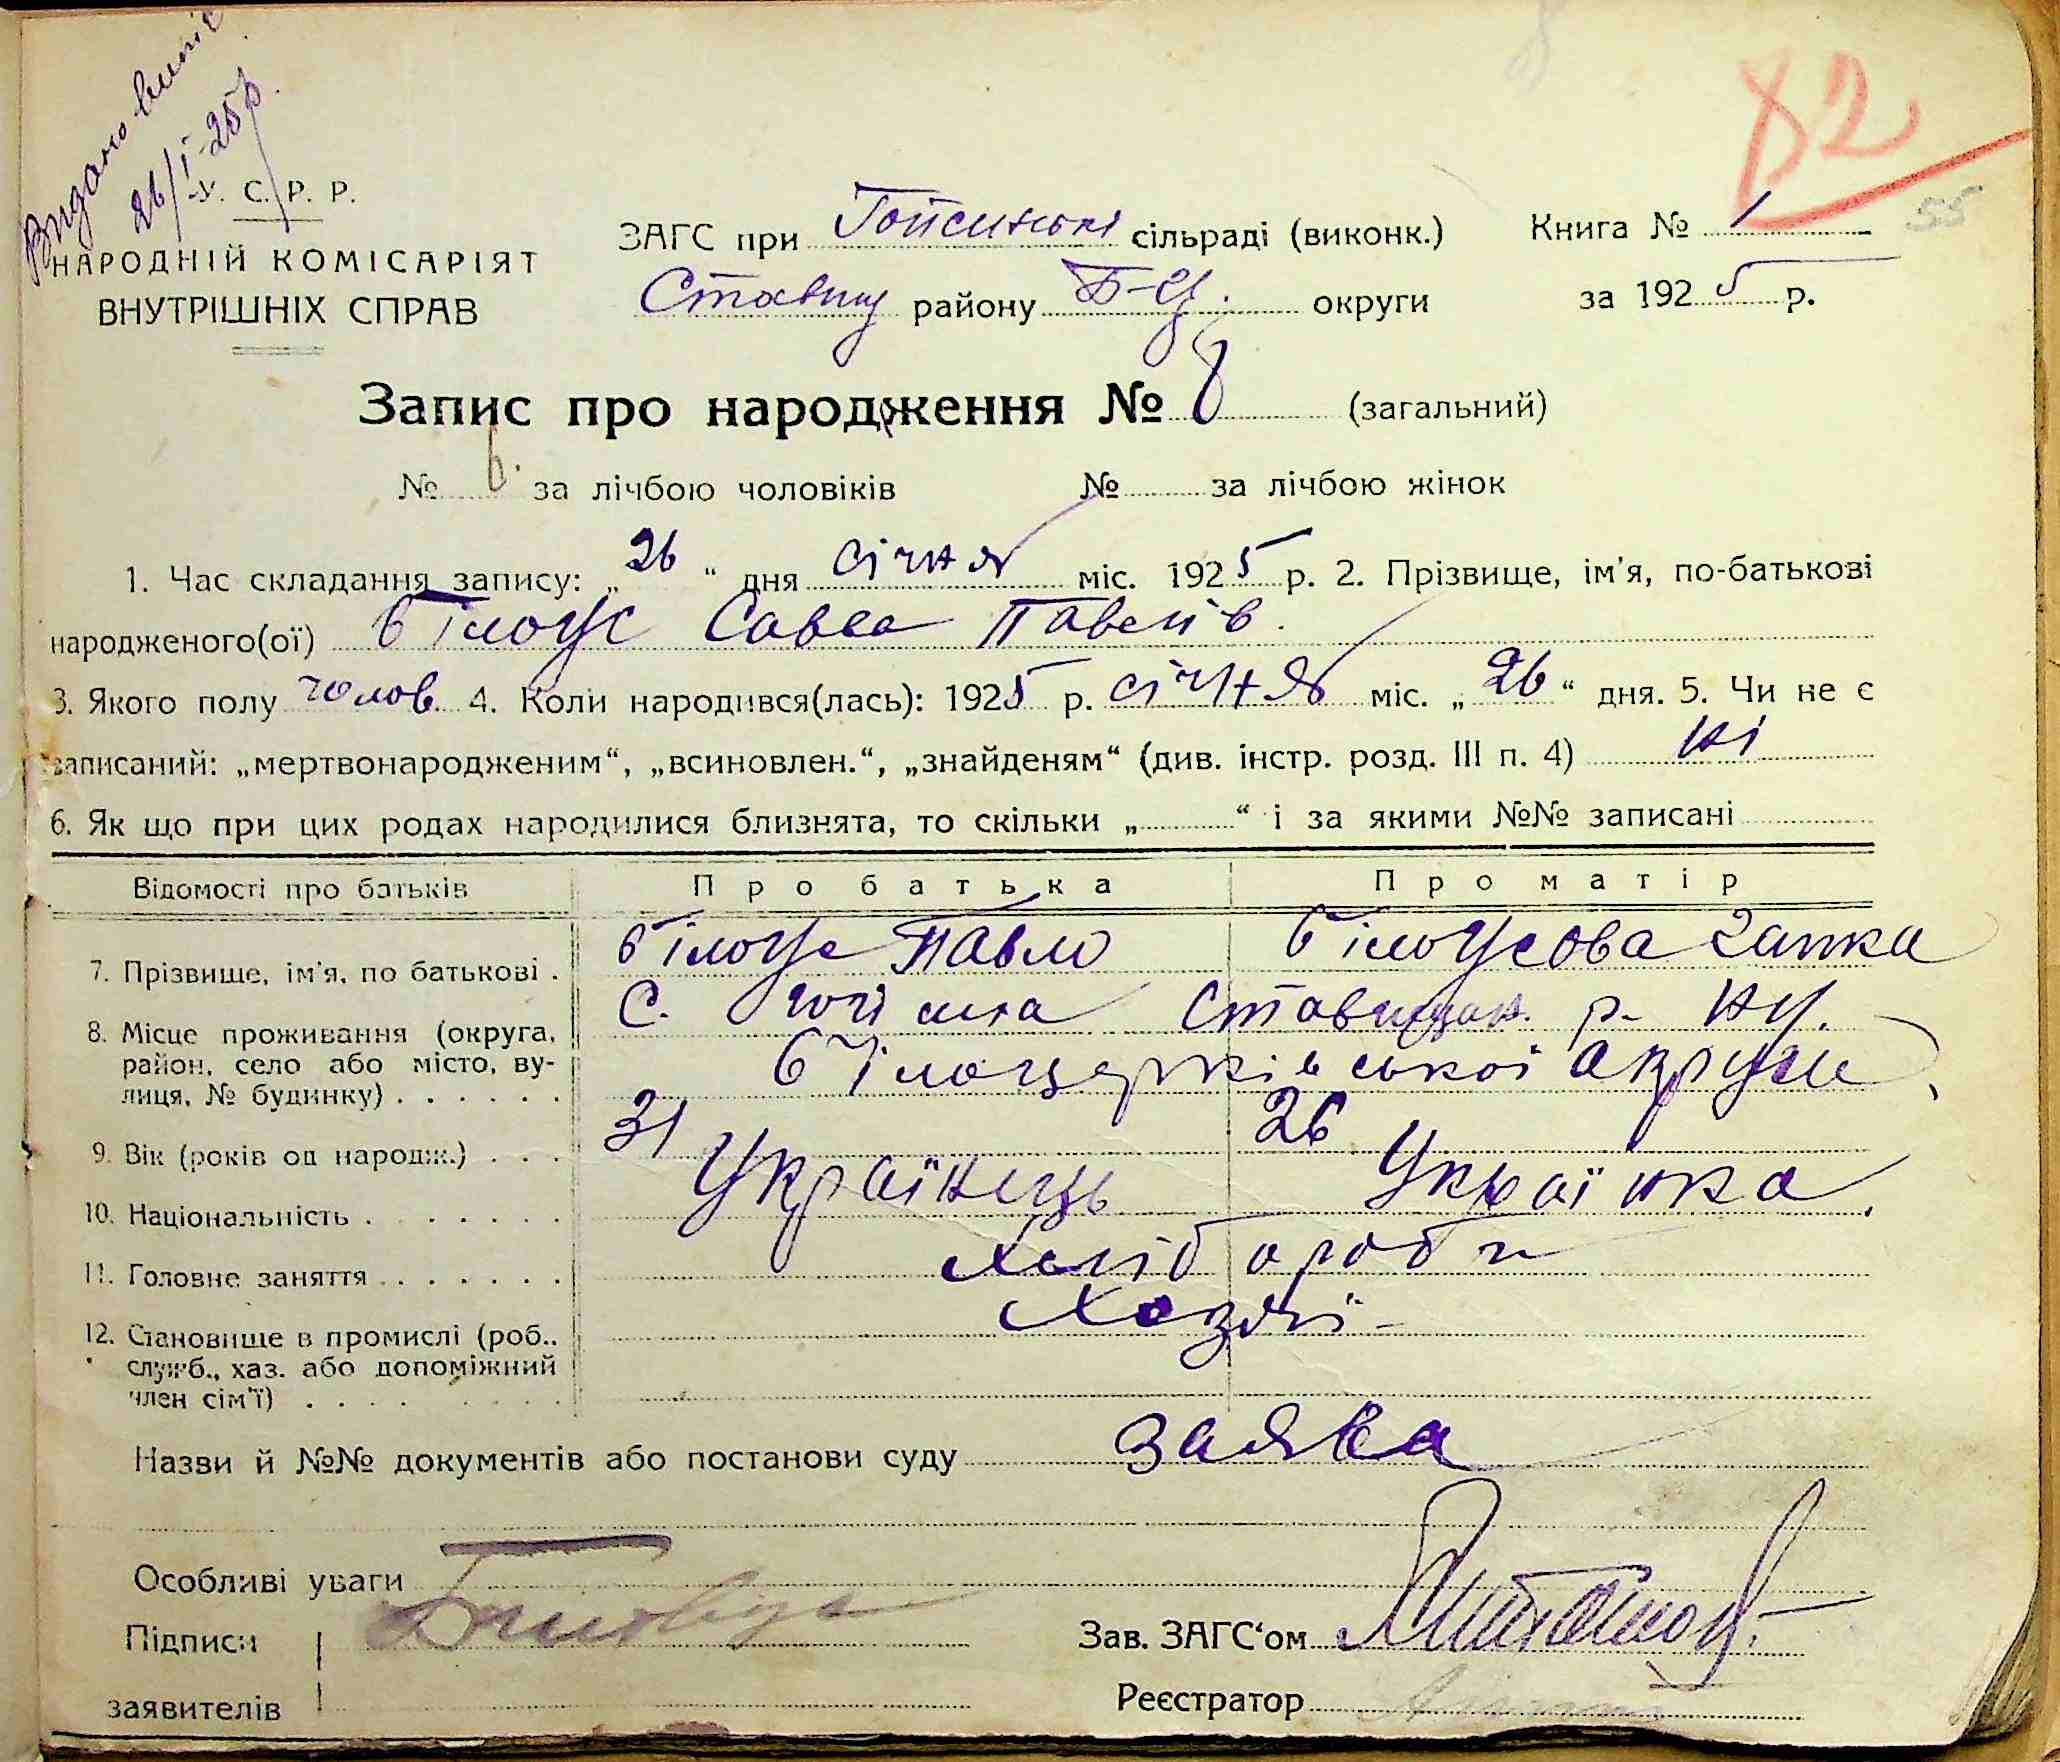 Видано випис
26/I-25р.
82
У. С. Р. Р.
НАРОДНІЙ КОМІСАРІЯТ
ВНУТРІШНІХ СПРАВ
ЗАГС при сільраді (виконк.)
Книга № 1
55
Ставищ району Б-Ц. округи
за 1925 р.
Запис про народження № 8 (загальний)
№ 6. за лічбою чоловіків № за лічбою жінок
1. Час складання запису: „26“ дня січня міс. 1925 р. 2. Прізвище, ім'я, по-батькові
народженого(ої) Білоус Савва Павлів.
3. Якого полу чолов. 4. Коли народився(лась): 1925 р. січня міс. „26“ дня. 5. Чи не є
записаний: „мертвонародженим“, „всиновлен.“, „знайденям“ (див. інстр. розд. III п. 4) ні
6. Як що при цих родах народилися близнята, то скільки „ “ і за якими №№ записані
Відомості про батьків Про батька Про матір
7. Прізвище, ім'я, по батькові . Білоус Павло Білоусова
8. Місце проживання (округа,
район, село або місто, ву-
лиця, № будинку) . . . . . .
С. Ставищан. р-ну.
Білоцерківської округи
9. Вік (років од народж.) . . . 31 26
10. Національність . . . . . . . Українець Українка.
11. Головне заняття . . . . . . . Хлібороби
12. Становище в промислі (роб..
служб., хаз. або допоміжний
член сім'ї) . . . . . . . . .
Хазяї-
Назви й №№ документів або постанови суду заява
Особливі уваги
Підписи
заявителів
Зав. ЗАГС‘ом
Реєстратор